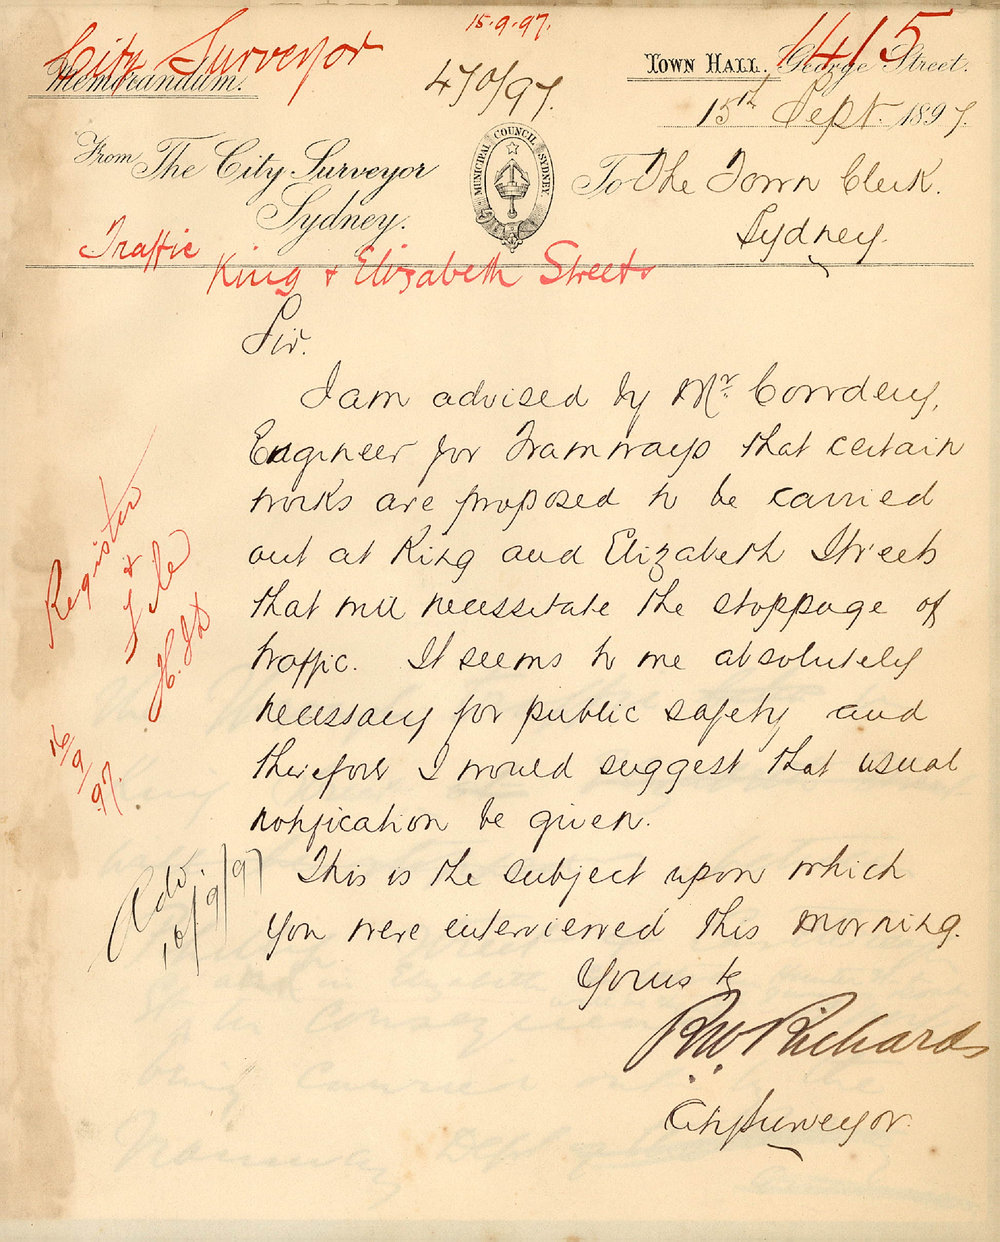 15.9.97.
City Surveyor
1415
Memorandum.
470/97.
Town Hall. George Street.
15th Sept. 1897.
From The City Surveyor
Sydney.
MUNICIPAL COUNCIL SYDNEY.
To The Town Clerk.
Sydney.
Traffic
King & Elizabeth Streets
Sir.
I am advised by Mr. Cowdery,
Engineer for Tramways that certain
works are proposed to be carried
out at King and Elizabeth Streets
that will necessitate the stoppage of
traffic. It seems to me absolutely
necessary for public safety and
therefore I would suggest that usual
notification be given.
This is the subject upon which
you were interviewed this morning.
Yours &c
R W Richards
City Surveyor.
Register
&
File
H.J.D
16/9/97.
Adv.
16/9/97